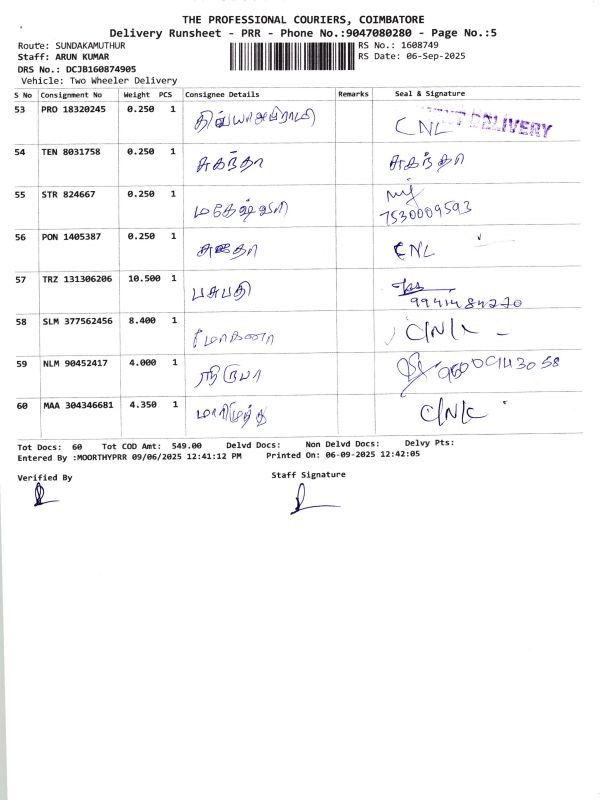 THE PROFESSIONAL COURIERS, COIMBATORE
Delivery Runsheet - PRR - Phone No.:9047080280 - Page No.:5
Route: SUNDAKAMUTHUR RS No.: 1608749
Staff: ARUN KUMAR RS Date: 06-Sep-2025
DRS No.: DCJB160874905
Vehicle: Two Wheeler Delivery
S No Consignment No Weight PCS Consignee Details Remarks Seal & Signature
53 PRO 18320245 0.250 1 CNL DELIVERY
54 TEN 8031758 0.250 1 சுகந்தா சுகந்தா
55 STR 824667 0.250 1 மகேஷ்வரி
7530009593
56 PON 1405387 0.250 1 சுதா CNL
57 TRZ 131306206 10.500 1 பசுபதி
9941484270
58 SLM 377562456 8.400 1 மோகனா C/N/L
59 NLM 90452417 4.000 1 நிருபா
60 MAA 304346681 4.350 1 மாரிமுத்து C/N/L
Tot Docs: 60 Tot COD Amt: 549.00 Delvd Docs: Non Delvd Docs: Delvy Pts:
Entered By :MOORTHYPRR 09/06/2025 12:41:12 PM Printed On: 06-09-2025 12:42:05
Verified By Staff Signature